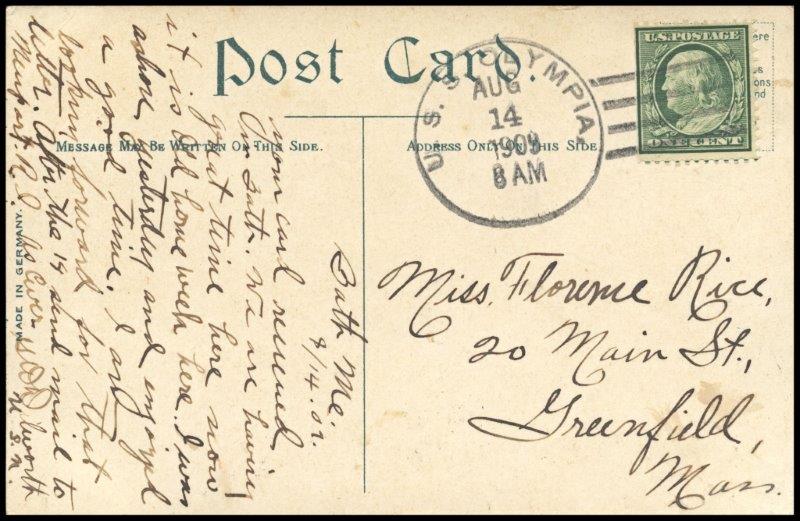 Post Card.
MESSAGE MAY BE WRITTEN ON THIS SIDE.
ADDRESS ONLY ON THIS SIDE
U.S. POSTAGE
ONE CENT
U. S. S. OLYMPIA
AUG
14
1909
8 AM
MADE IN GERMANY.
Bath Me.
8/14.09.
Your card received
Our Bath. We are having
great time here now
it is Old home week here. I was
ashore yesterday and enjoyed
a good time. I am
looking forward for that
letter. After the 19 send mail to
Newport R.I. As ever
Miss. Florence Rice,
20 Main St.,
Greenfield,
Mass.